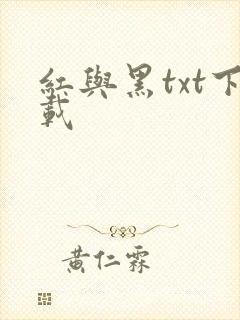 紅與黑txt下
載
黄仁霖